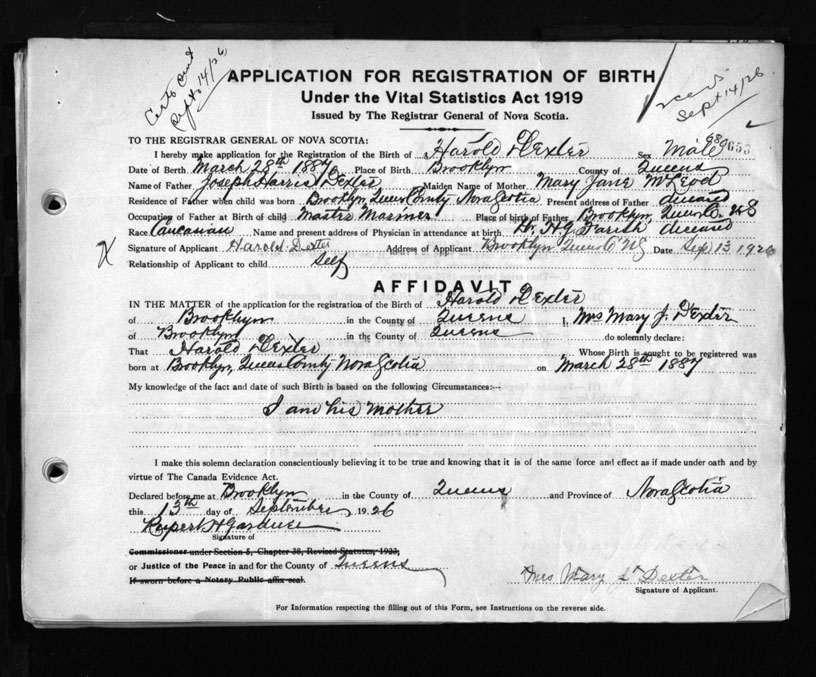 Sept 14/26
Sept 14/26
APPLICATION FOR REGISTRATION OF BIRTH
Under the Vital Statistics Act 1919
Issued by The Registrar General of Nova Scotia.
TO THE REGISTRAR GENERAL OF NOVA SCOTIA:
I hereby make application for the Registration of the Birth of Harold Dexter Sex Male
Date of Birth March 28th 1887 Place of Birth Brooklyn County of Queens
Name of Father Joseph Harris Dexter Maiden Name of Mother Mary Jane McLeod
Residence of Father when child was born Brooklyn, Queens County Nova Scotia Present address of Father deceased
Occupation of Father at Birth of child Master Mariner Place of birth of Father Brooklyn, Queens Co. N S
Race Caucasian Name and present address of Physician in attendance at birth Dr. H G Farish deceased
Signature of Applicant Harold Dexter Address of Applicant Brooklyn Queens Co NS Date Sep 13 1926
Relationship of Applicant to child Self
AFFIDAVIT
IN THE MATTER of the application for the registration of the Birth of Harold Dexter
of Brooklyn in the County of Queens I, Mrs Mary J. Dexter
of Brooklyn in the County of Queens do solemnly declare:
That Harold Dexter Whose Birth is sought to be registered was
born at Brooklyn, Queens County Nova Scotia on March 28th 1887
My knowledge of the fact and date of such Birth is based on the following Circumstances:--
I am his Mother
I make this solemn declaration conscientiously believing it to be true and knowing that it is of the same force and effect as if made under oath and by
virtue of The Canada Evidence Act.
Declared before me at Brooklyn in the County of Queens and Province of Nova Scotia
this 13th day of September 1926
Rupert H Gardner
Signature of
Commissioner under Section 5, Chapter 38, Revised Statutes, 1923,
or Justice of the Peace in and for the County of Queens
If sworn before a Notary Public affix seal.
Mrs Mary J Dexter
Signature of Applicant.
For Information respecting the filling out of this Form, see Instructions on the reverse side.